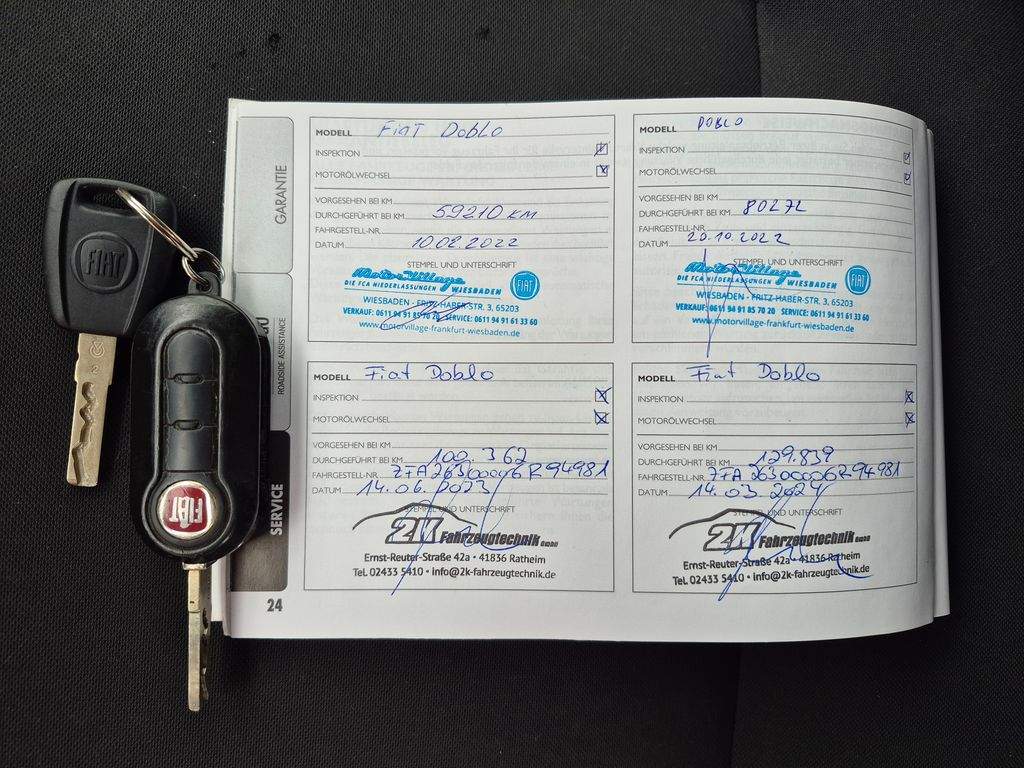 FIAT
2
FIAT
GARANTIE
ROADSIDE ASSISTANCE
SERVICE
24
MODELL Fiat Doblo
INSPEKTION
MOTORÖLWECHSEL
VORGESEHEN BEI KM
DURCHGEFÜHRT BEI KM 59210 KM
FAHRGESTELL-NR.
DATUM 10.02.2022
STEMPEL UND UNTERSCHRIFT
Motor Village
DIE FCA NIEDERLASSUNGEN WIESBADEN
FIAT
WIESBADEN - FRITZ-HABER-STR. 3, 65203
VERKAUF: 0611 94 91 85 70 20 SERVICE: 0611 94 91 61 33 60
www.motorvillage-frankfurt-wiesbaden.de
MODELL DOBLO
INSPEKTION
MOTORÖLWECHSEL
VORGESEHEN BEI KM
DURCHGEFÜHRT BEI KM 80272
FAHRGESTELL-NR.
DATUM 20.10.2022
STEMPEL UND UNTERSCHRIFT
Motor Village
DIE FCA NIEDERLASSUNGEN WIESBADEN
FIAT
WIESBADEN - FRITZ-HABER-STR. 3, 65203
VERKAUF: 0611 94 91 85 70 20 SERVICE: 0611 94 91 61 33 60
www.motorvillage-frankfurt-wiesbaden.de
MODELL Fiat Doblo
INSPEKTION
MOTORÖLWECHSEL
VORGESEHEN BEI KM
DURCHGEFÜHRT BEI KM 100.362
FAHRGESTELL-NR. ZFA26300006R94981
DATUM 14.06.2023
STEMPEL UND UNTERSCHRIFT
2K Fahrzeugtechnik GmbH
Ernst-Reuter-Straße 42a • 41836 Ratheim
Tel. 02433 5410 • info@2k-fahrzeugtechnik.de
MODELL Fiat Doblo
INSPEKTION
MOTORÖLWECHSEL
VORGESEHEN BEI KM
DURCHGEFÜHRT BEI KM 129.839
FAHRGESTELL-NR. ZFA26300006R94981
DATUM 14.03.2024
STEMPEL UND UNTERSCHRIFT
2K Fahrzeugtechnik GmbH
Ernst-Reuter-Straße 42a • 41836 Ratheim
Tel. 02433 5410 • info@2k-fahrzeugtechnik.de